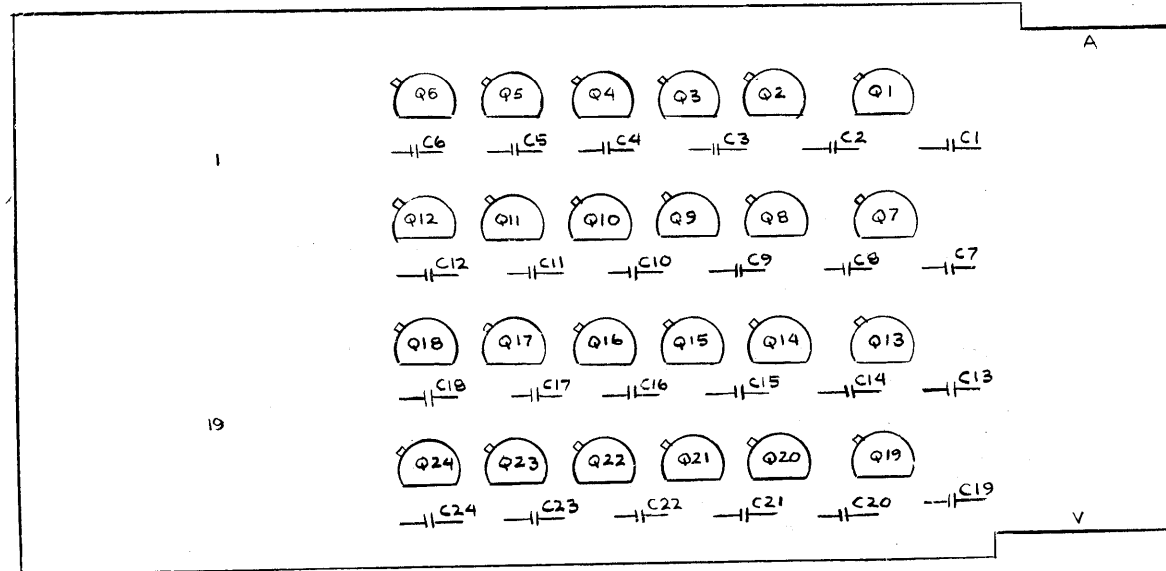 A
Q6 Q5 Q4 Q3 Q2 Q1
C6 C5 C4 C3 C2 C1
1
Q12 Q11 Q10 Q9 Q8 Q7
C12 C11 C10 C9 C8 C7
Q18 Q17 Q16 Q15 Q14 Q13
C18 C17 C16 C15 C14 C13
19
Q24 Q23 Q22 Q21 Q20 Q19
C24 C23 C22 C21 C20 C19
V